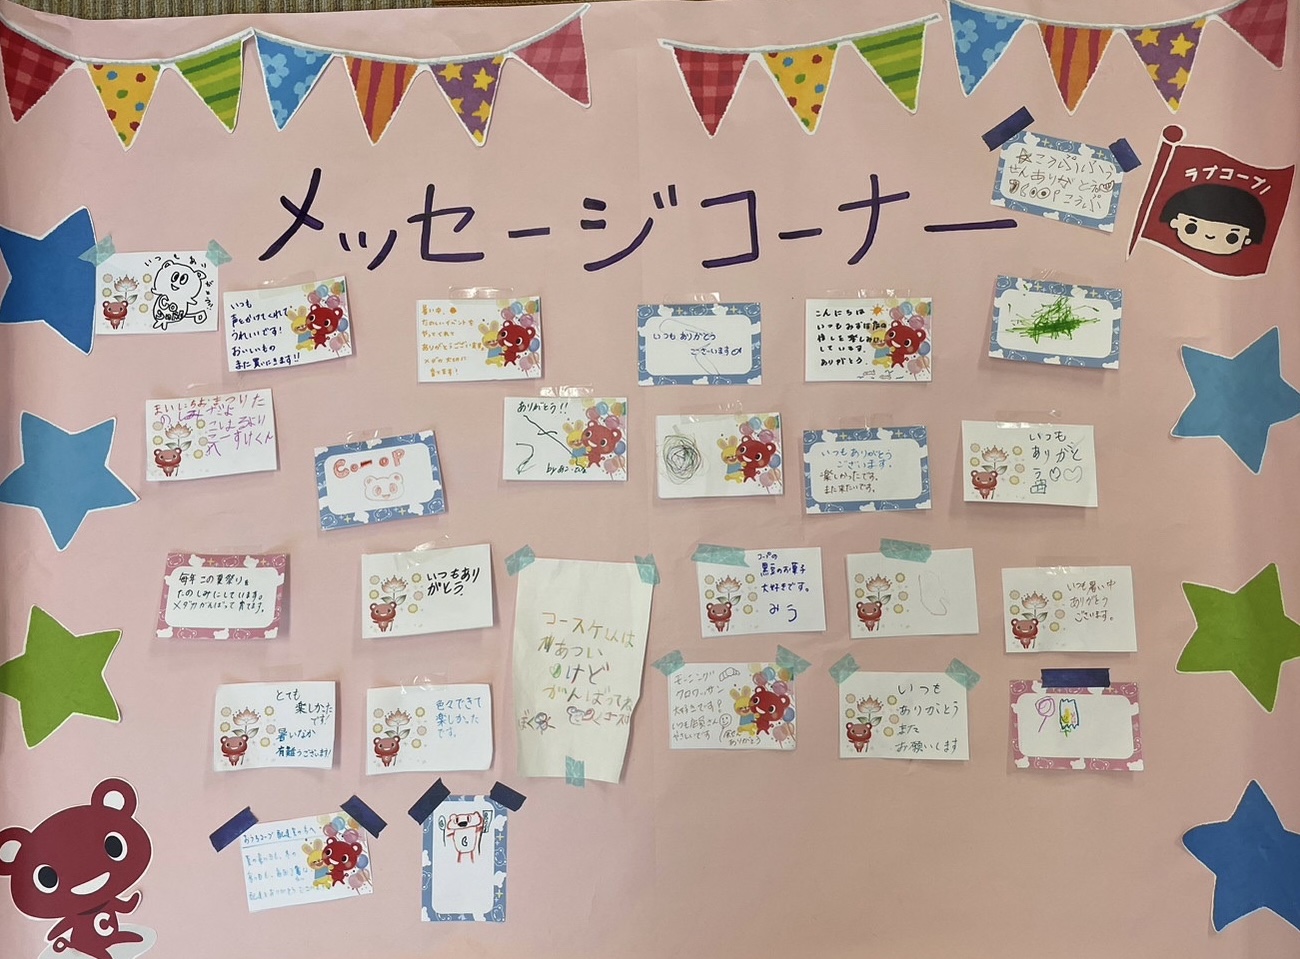 メッセージコーナー
ラブコープ
いつもあ
いつも
声をかけてくれて
うれしいです!
おいしいもの
また買いにきます!!
暑い中、
たのしいイベントを
やってくれて
ありがとうございます
メダカ大切に
育てます!
いつもありがとう
ございます
こんにちは
いつもみずほたの
しています。
ありがとう。
まいにちおまつりた
のしみだよ
Co-oP
ありがとう!!
いつもありがとう
ございます。
楽しかったです。
また来たいです。
いつも
ありがと
う
毎年この夏祭りを
たのしみにしています。
メダカがんばって育てます。
いつもあり
がとう
コースケくんは
あつい
けど
がんばってね
コープの
黒豆のお菓子
大好きです。
みう
いつも暑い中
ありがとう
ございます。
とても
楽しかった
です
暑いなか
有難うございます!
色々できて
楽しかった
です。
モーニング
クロワッサン
大好きです!
いつも店員さん
やさしいです
ありがとう
いつも
ありがとう
また
お願いします
おうちコープ配達員の方へ
C